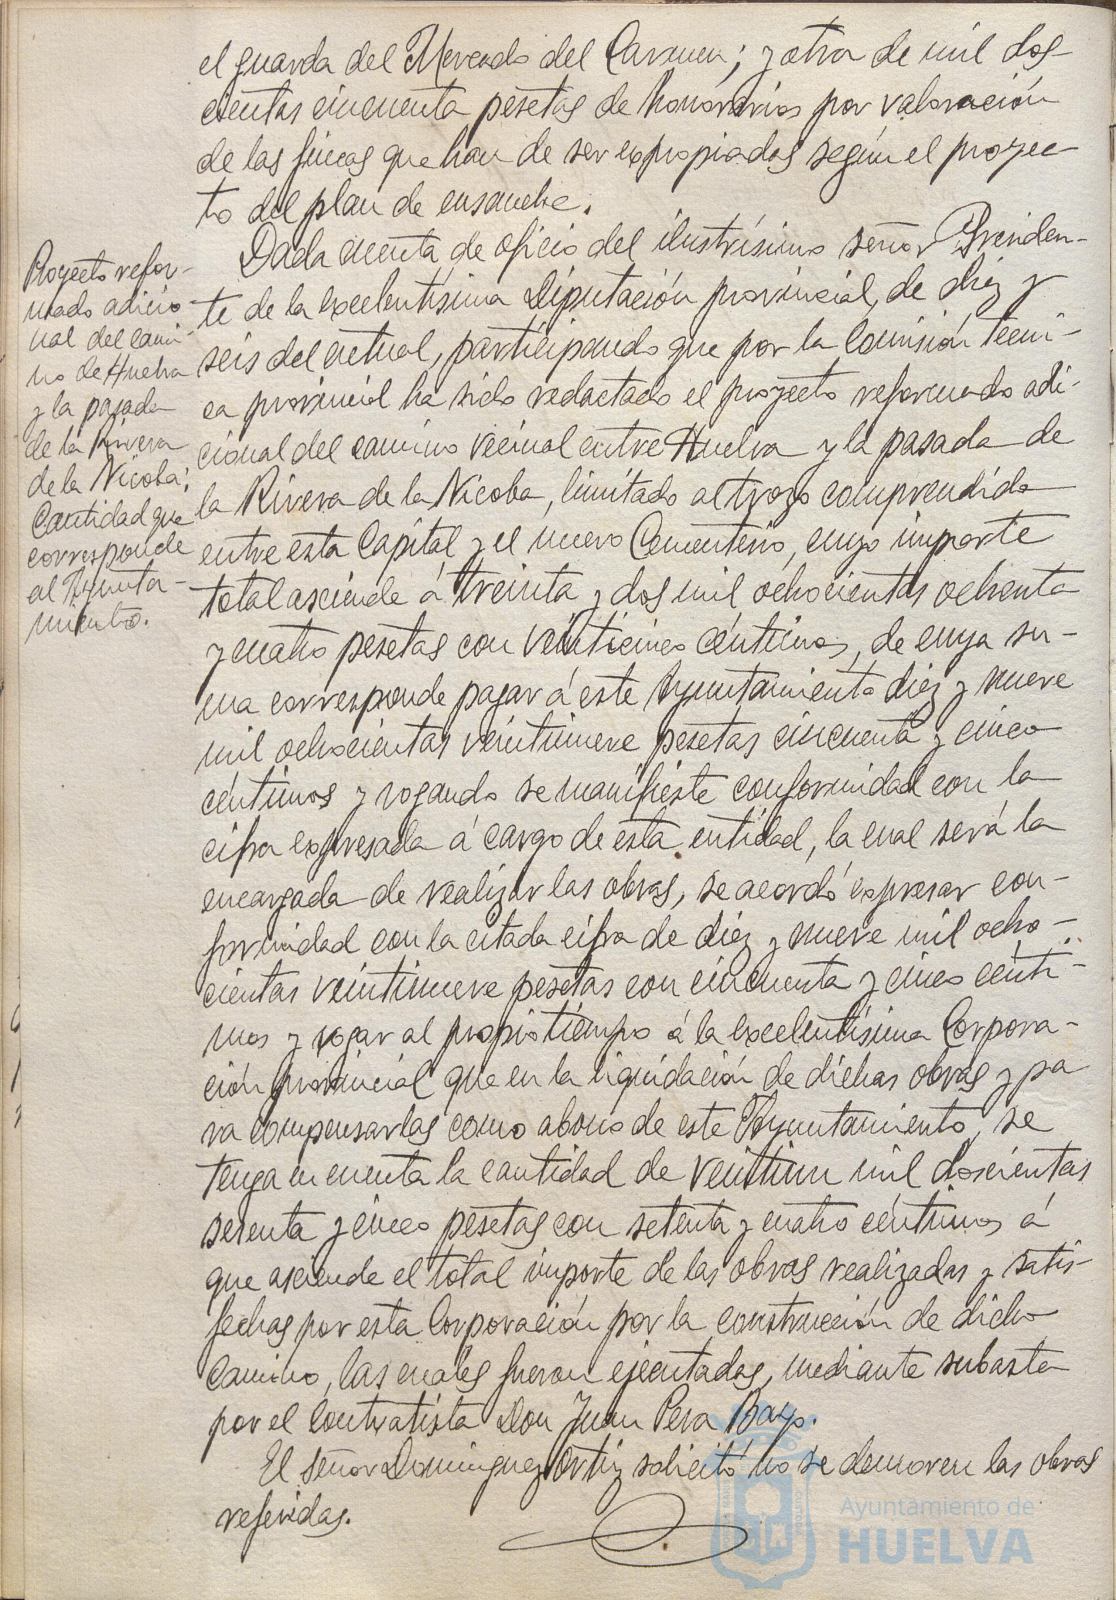 el guarda del Mercado del Carmen; y otra de mil dos-
cientas cincuenta pesetas de honorarios por valoración
de las fincas que han de ser expropiadas según el proyec-
to del plan de ensanche.
Proyecto refor-
mado adicio-
nal del cami-
no de Huelva
y la pasada
de la Rivera
de la Nicoba;
Cantidad que
corresponde
al Ayunta-
miento.
Dada cuenta de oficio del ilustrísimo señor Presiden-
te de la excelentísima Diputación provincial, de diez y
seis del actual, participando que por la Comisión técni-
ca provincial ha sido redactado el proyecto reformado adi-
cional del camino vecinal entre Huelva y la pasada de
la Rivera de la Nicoba, limitado al trozo comprendido
entre esta Capital y el nuevo Cementerio, cuyo importe
total asciende á treinta y dos mil ochocientas ochenta
y cuatro pesetas con veinticinco céntimos, de cuya su-
ma corresponde pagar á este Ayuntamiento diez y nueve
mil ochocientas veintinueve pesetas cincuenta y cinco
céntimos y rogando se manifieste conformidad con la
cifra expresada á cargo de esta entidad, la cual será la
encargada de realizar las obras, se acordó expresar con-
formidad con la citada cifra de diez y nueve mil ocho-
cientas veintinueve pesetas con cincuenta y cinco cénti-
mos y rogar al propio tiempo á la excelentísima Corpora-
ción provincial que en la liquidación de dichas obras y pa
ra compensarlas como abono de este Ayuntamiento, se
tenga en cuenta la cantidad de veintiun mil doscientas
sesenta y cinco pesetas con setenta y cuatro céntimos á
que asciende el total importe de las obras realizadas y satis-
fechas por esta Corporación por la construcción de dicho
Camino, las cuales fueron ejecutadas, mediante subasta
por el Contratista Don Juan Pera Bayo.
El señor Domínguez Ortiz solicitó no se demoren las obras
referidas.
Ayuntamiento de
HUELVA